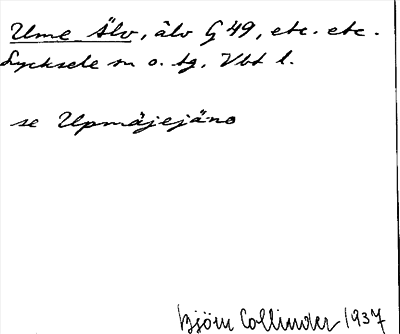 Ume Älv, älv G 49, etc. etc.
Lycksele sn o. tg. Vbt l.
se Upmäjejäno
Björn Collinder 1937